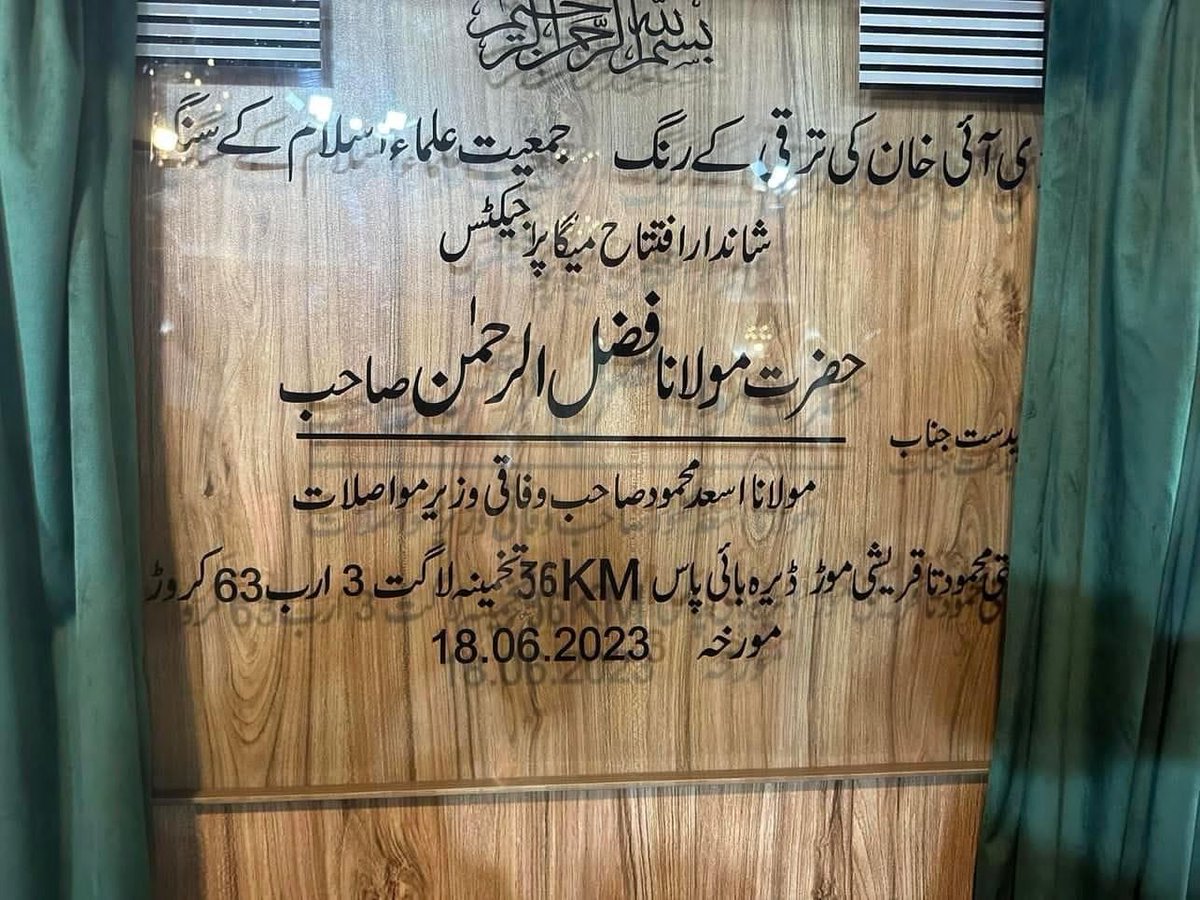 بسم اللہ الرحمن الرحیم
ی آئی خان کی ترقی کے رنگ جمعیت علماء اسلام کے سنگ
شاندار افتتاح میگا پراجیکٹس
حضرت مولانا فضل الرحمٰن صاحب
بدست جناب
مولانا اسعد محمود صاحب وفاقی وزیر مواصلات
تی محمود تا قریشی موڑ ڈیرہ بائی پاس 36KM تخمینہ لاگت 3 ارب 63 کروڑ
مورخہ 18.06.2023